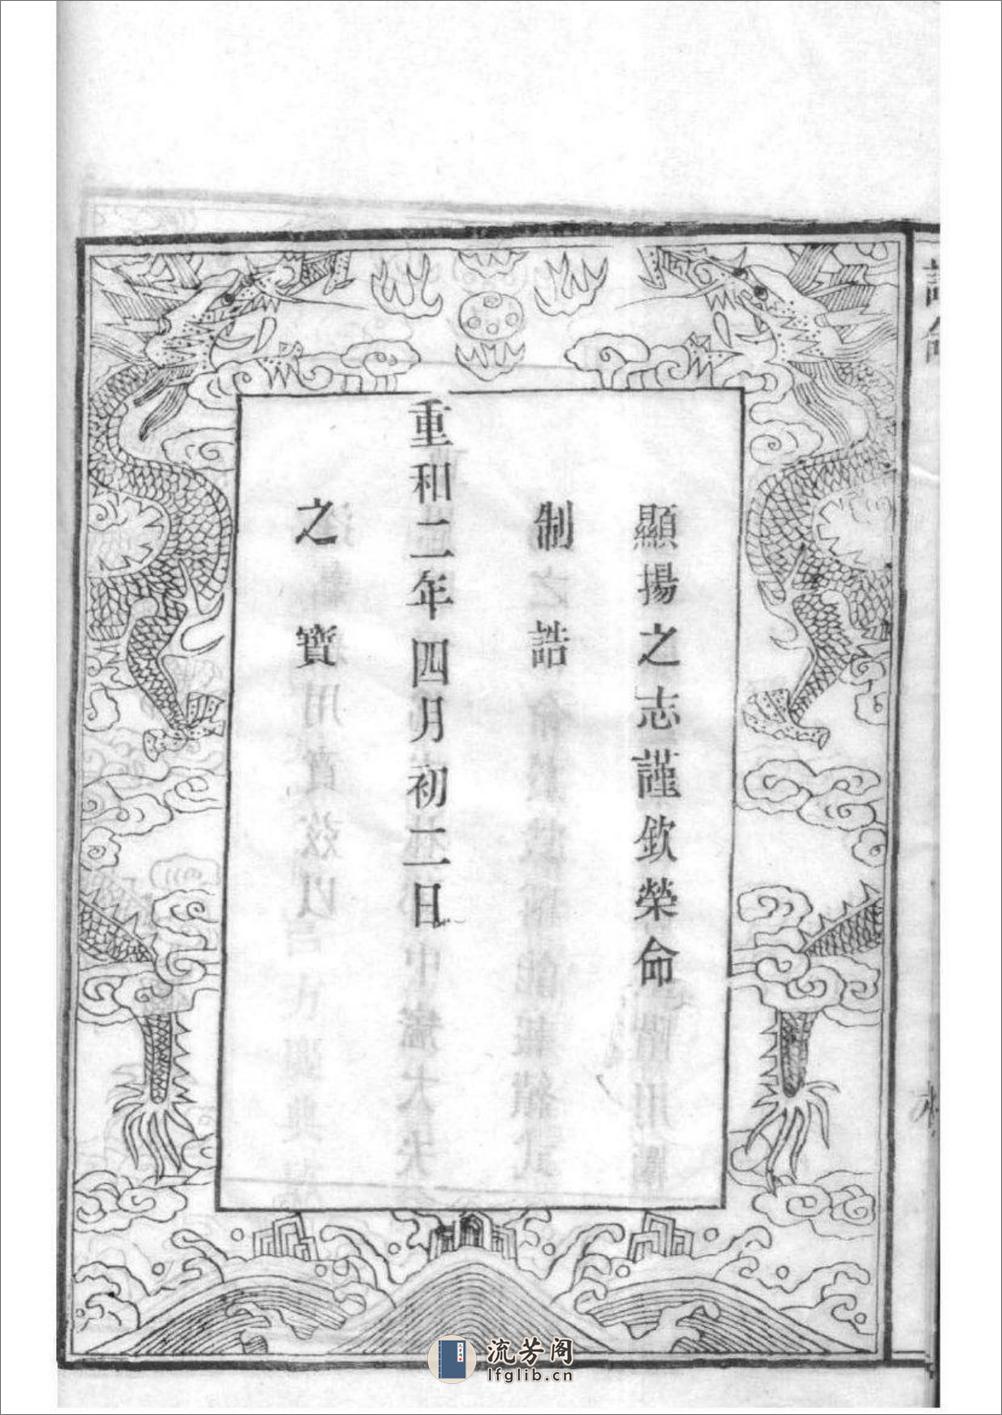 顯揚之志謹欽榮命
制誥
重和二年四月初二日
之寶
流芳阁
lfglib.cn